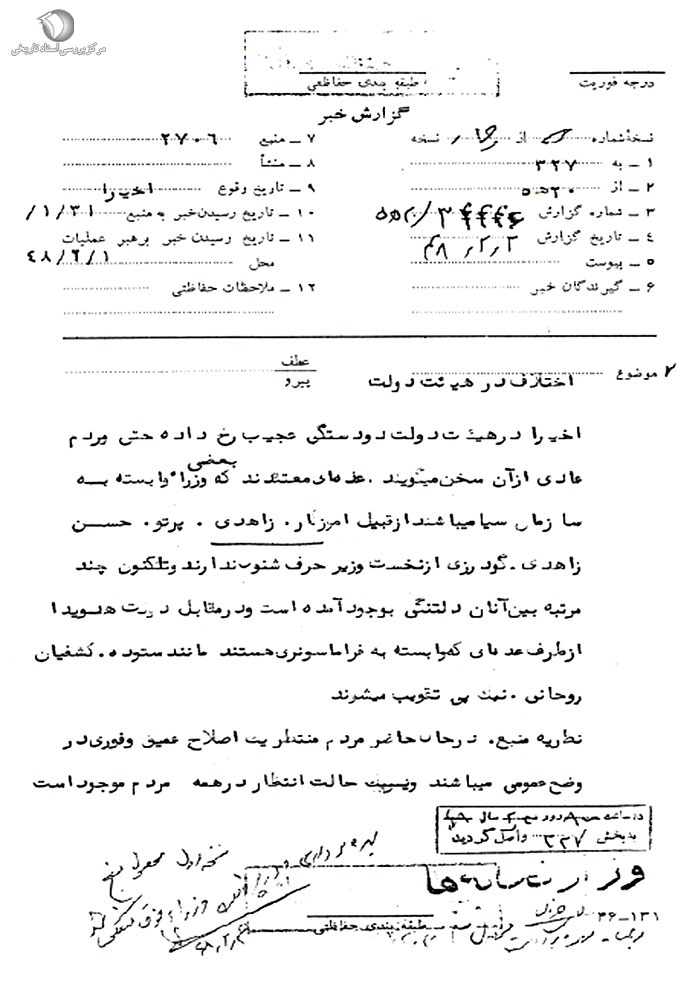 مرکز بررسی اسناد تاریخی
طبقه بندی حفاظتی
درجه فوریت
گزارش خبر
نسخهٔ شماره از نسخه
۱ ـ به ۳۲۷
۲ ـ از ۵۵۲۰
۳ ـ شماره گزارش
۴ ـ تاریخ گزارش ۴۸/۲/۲
۵ ـ پیوست
۶ ـ گیرندگان خبر
۷ ـ منبع ۲۷۰۶
۸ ـ منشأ
۹ ـ تاریخ وقوع اخیرا
۱۰ ـ تاریخ رسیدن خبر به منبع ۱/۳۱/
۱۱ ـ تاریخ رسیدن خبر برهبر عملیات
محل ۴۸/۲/۱
۱۲ ـ ملاحظات حفاظتی
۷ موضوع اختلاف در هیئت دولت
عطف
پیرو
اخیرا در هیئت دولت دودستگی عجیب رخ داده حتی مردم
عادی از آن سخن میگویند . عده‌ای معتقدند که بعضی وزراء وابسته به
سازمان سیا میباشند از قبیل آموزگار . زاهدی . پرتو . حسن
زاهدی . گودرزی از نخست وزیر حرف شنوی ندارند و تاکنون چند
مرتبه بین آنان دلتنگی بوجود آمده است و در مقابل دولت هویدا
از طرف عده‌ای که وابسته به فراماسونری هستند مانند ستوده . کشفیان
روحانی . نیک پی تقویت میشوند
نظریه منبع . در حال حاضر مردم منتظر یک اصلاح عمیق و فوری در
وضع عمومی میباشند و یک حالت انتظار در همه مردم موجود است
در ساعت روز سال
به بخش ۳۲۷ واصل گردید
نسخه اول
بهره برداری
طبقه بندی حفاظتی
۳۶-۱۳۱